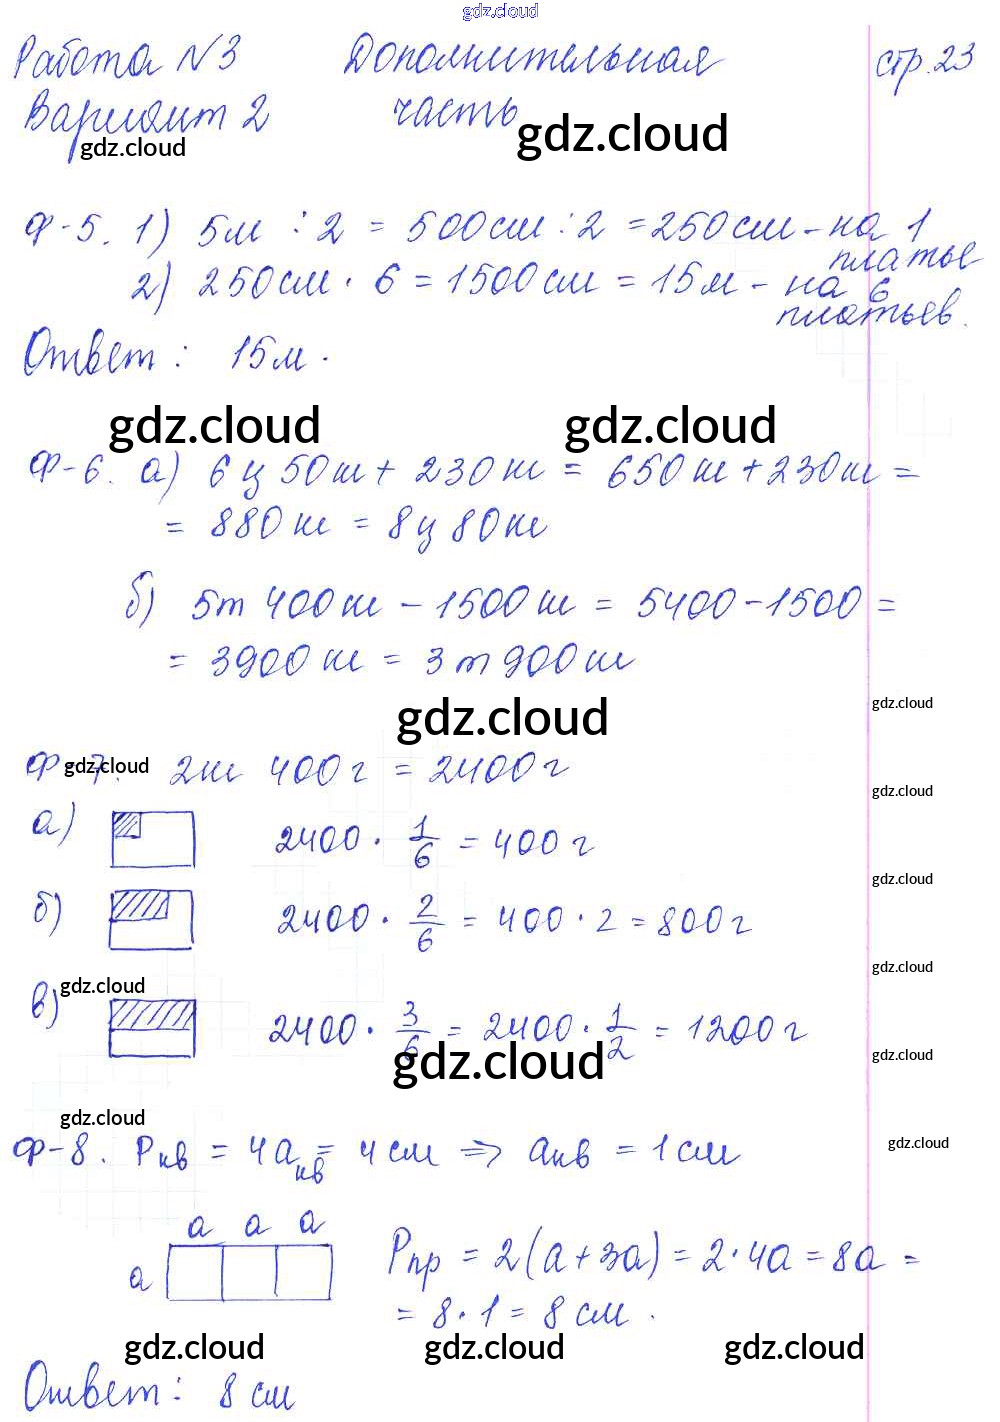 gdz.cloud
Работа №3 Дополнительная стр.23
Вариант 2 часть
gdz.cloud gdz.cloud
Ф-5. 1) 5м : 2 = 500см : 2 = 250см - на 1
платье
2) 250см · 6 = 1500см = 15м - на 6
платьев.
Ответ: 15м.
gdz.cloud gdz.cloud
Ф-6. а) 6ц 50кг + 230кг = 650кг + 230кг =
= 880кг = 8ц 80кг
б) 5т 400кг - 1500кг = 5400 - 1500 =
= 3900кг = 3т 900кг
gdz.cloud gdz.cloud
Ф-7. 2кг 400г = 2400г
gdz.cloud
gdz.cloud
а) 2400 · 1/6 = 400г
gdz.cloud
б) 2400 · 2/6 = 400 · 2 = 800г
gdz.cloud
gdz.cloud
в) 2400 · 3/6 = 2400 · 1/2 = 1200г
gdz.cloud gdz.cloud
gdz.cloud
Ф-8. Pкв = 4aкв = 4см => aкв = 1см
gdz.cloud
a a a
a Pпр = 2(a+3a) = 2·4a = 8a =
= 8·1 = 8см.
gdz.cloud gdz.cloud gdz.cloud
Ответ: 8см